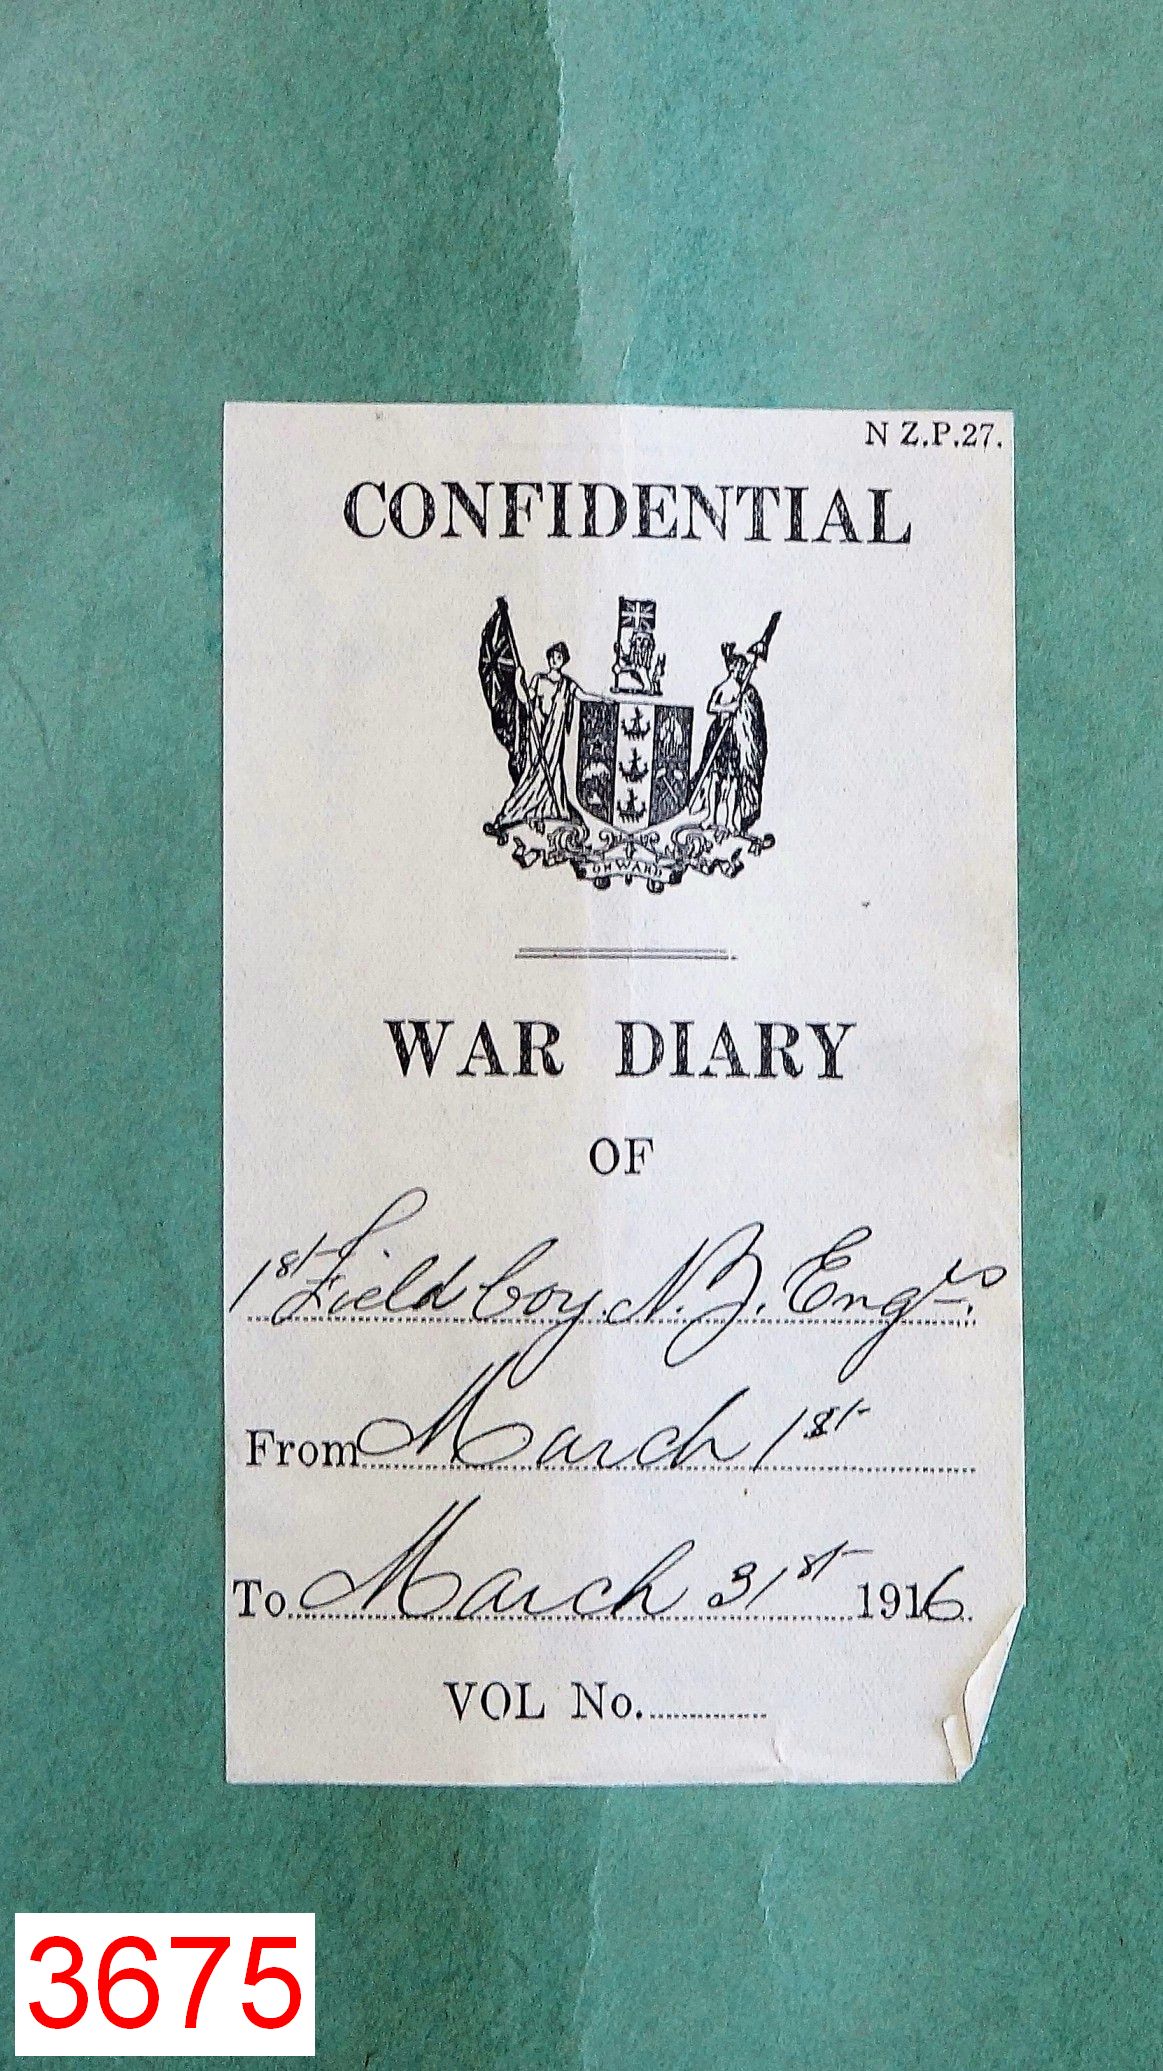 N Z.P.27.
CONFIDENTIAL
ONWARD
WAR DIARY
OF
1st Field Coy. N.Z. Engrs.
From March 1st
To March 31st 1916.
VOL No.
3675